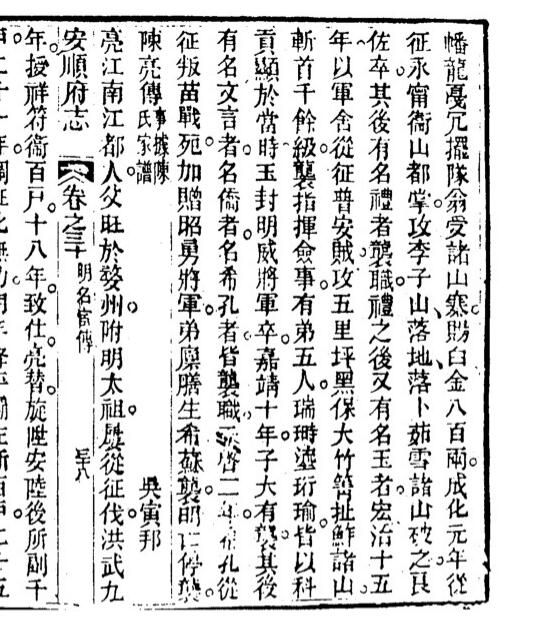 幡龍戞冗擺隊翁受諸山寨賜白金八百兩成化元年從
征永甯衞山都掌攻李子山落地落卜茹雪諸山破之艮
佐卒其後有名禮者襲職禮之後又有名玉者宏治十五
年以軍舍從征普安賊攻五里坪黑保大竹箐扯鮓諸山
斬首千餘級襲指揮僉事有弟五人瑞珦璗珩瑜皆以科
貢顯於當時玉封明威將軍卒嘉靖十年子大有襲其後
有名文言者名僑者名希孔者皆襲職天啓二年希孔從
征叛苗戰死加贈昭勇將軍弟廩膳生希蘇襲明亡停襲
陳亮傳事據陳氏家譜 吳寅邦
亮江南江都人父旺於婺州附明太祖屢從征伐洪武九
安順府志 卷之三十 明名宦傳
年授祥符衞百戶十八年致仕亮替旋陞安陸後所副千